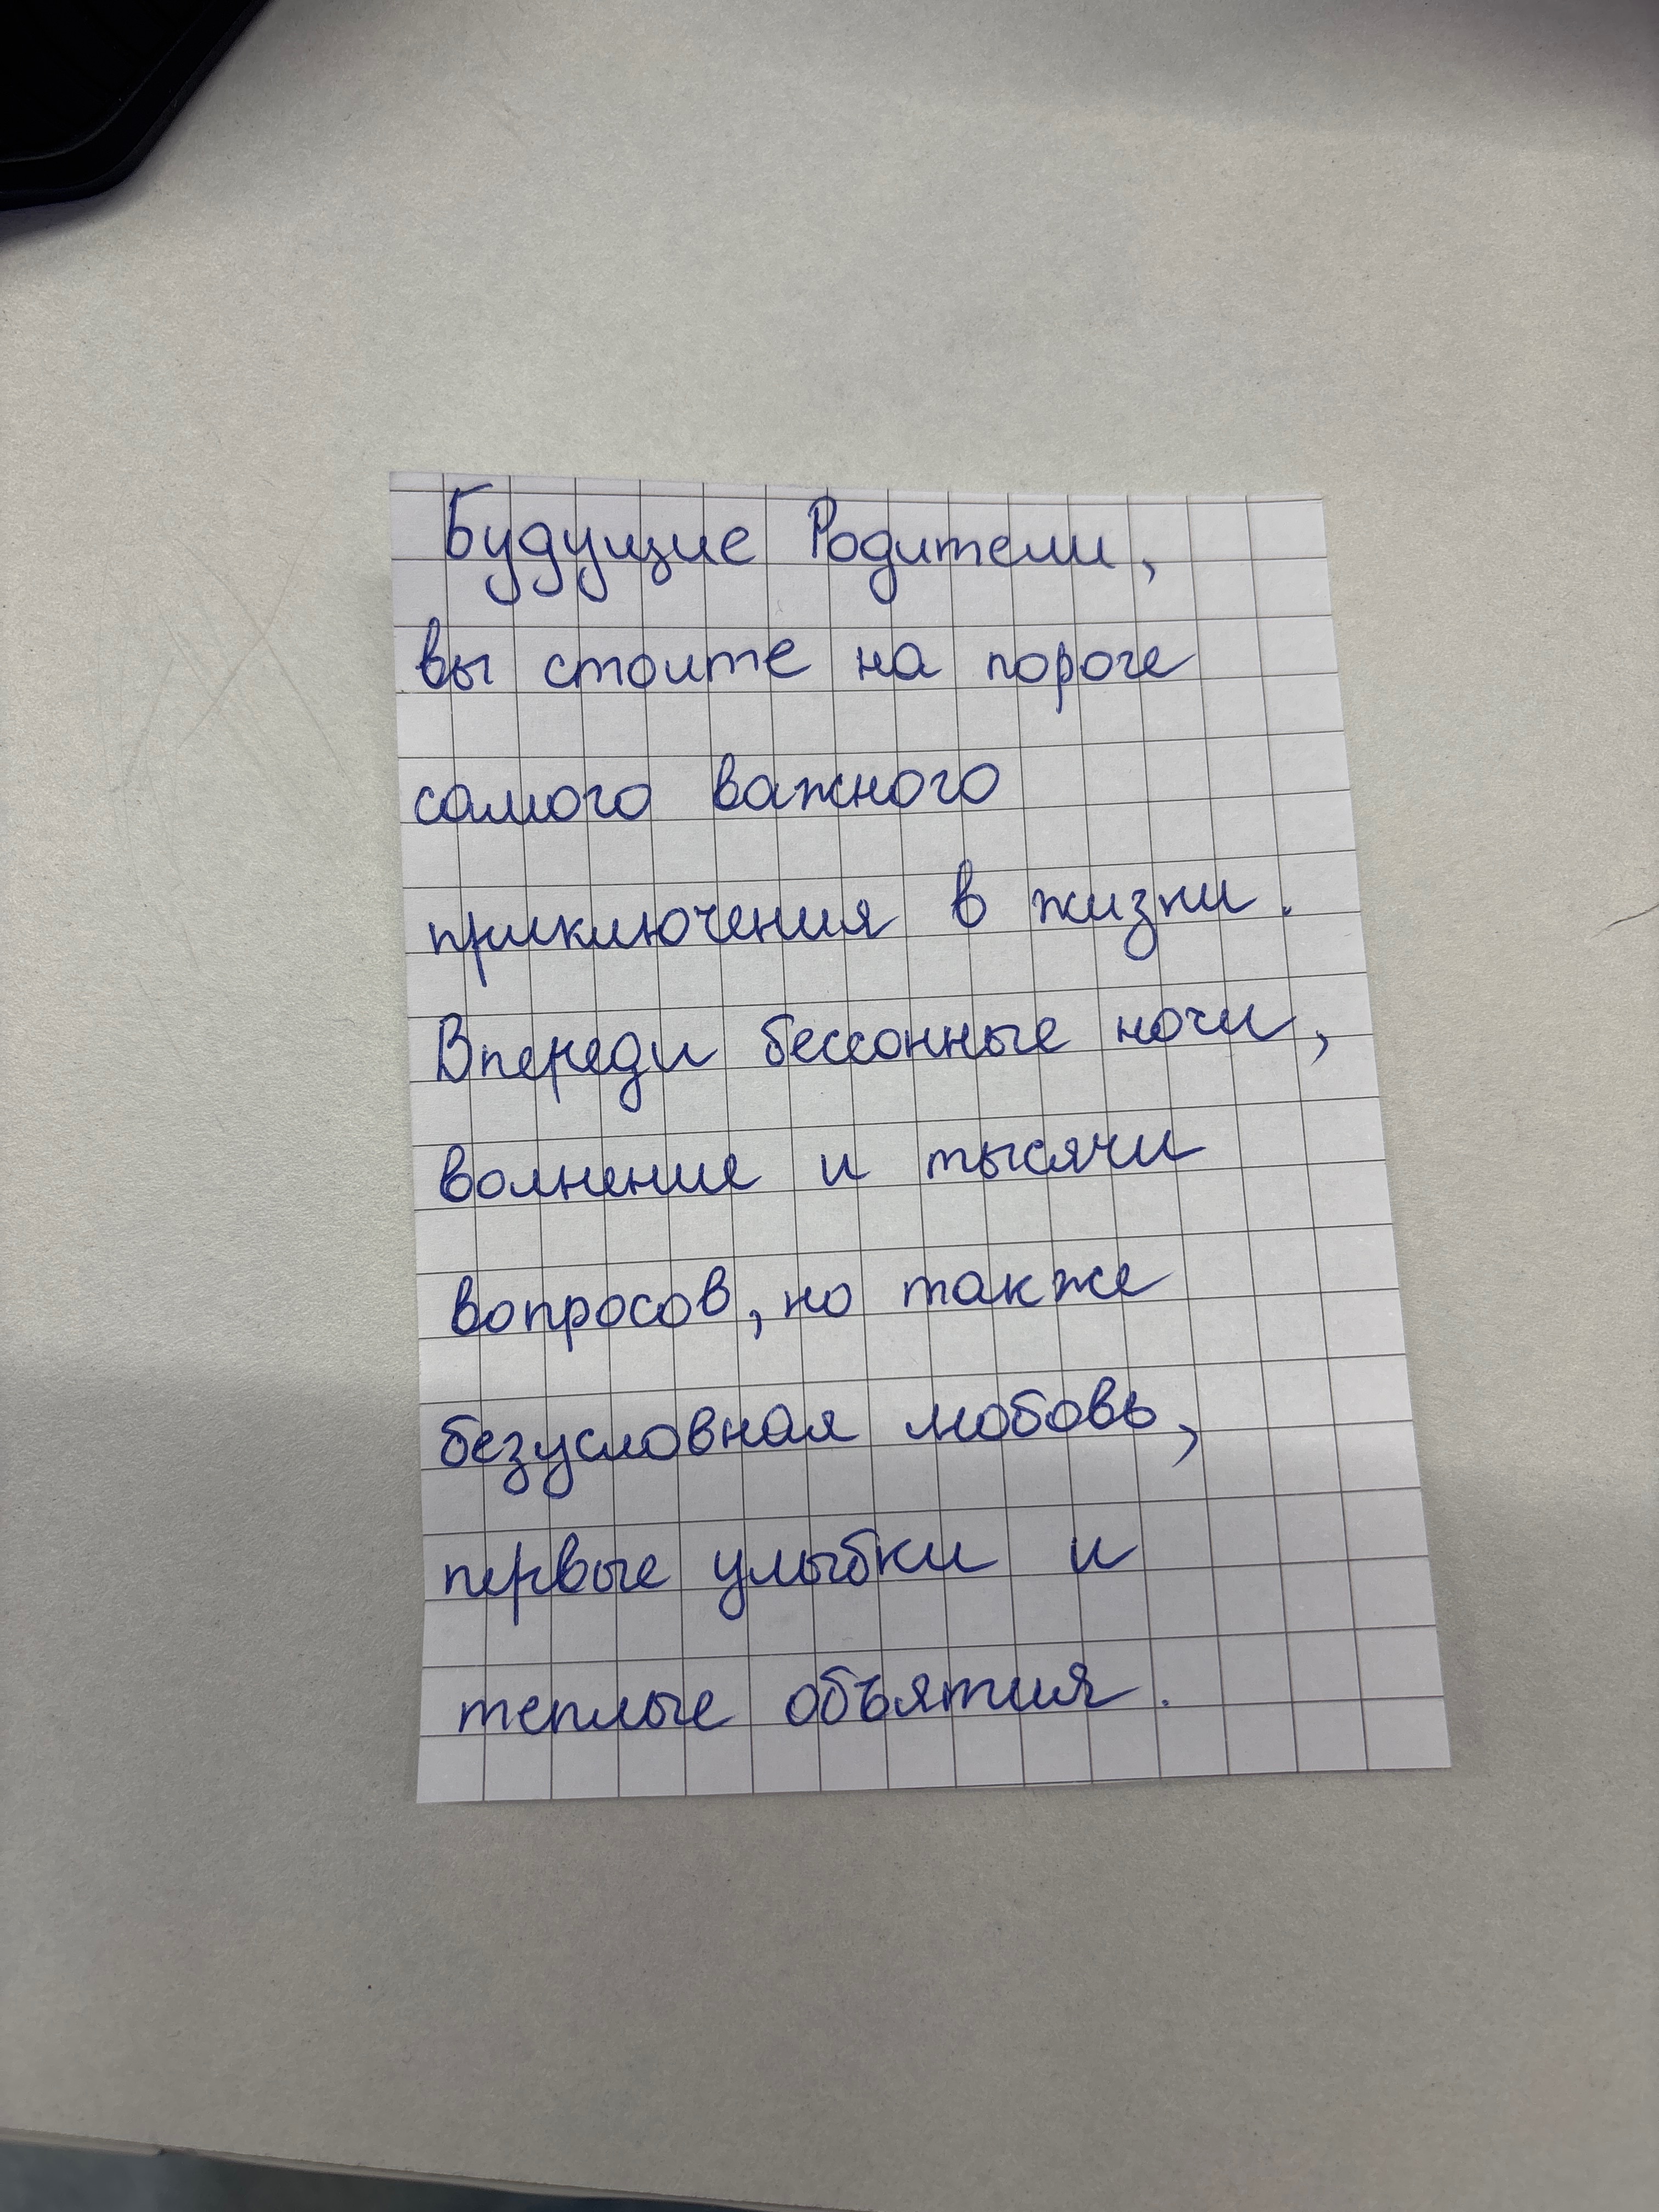 Будущие Родители,
вы стоите на пороге
самого важного
приключения в жизни.
Впереди бессонные ночи,
волнение и тысячи
вопросов, но также
безусловная любовь,
первые улыбки и
теплые объятия.